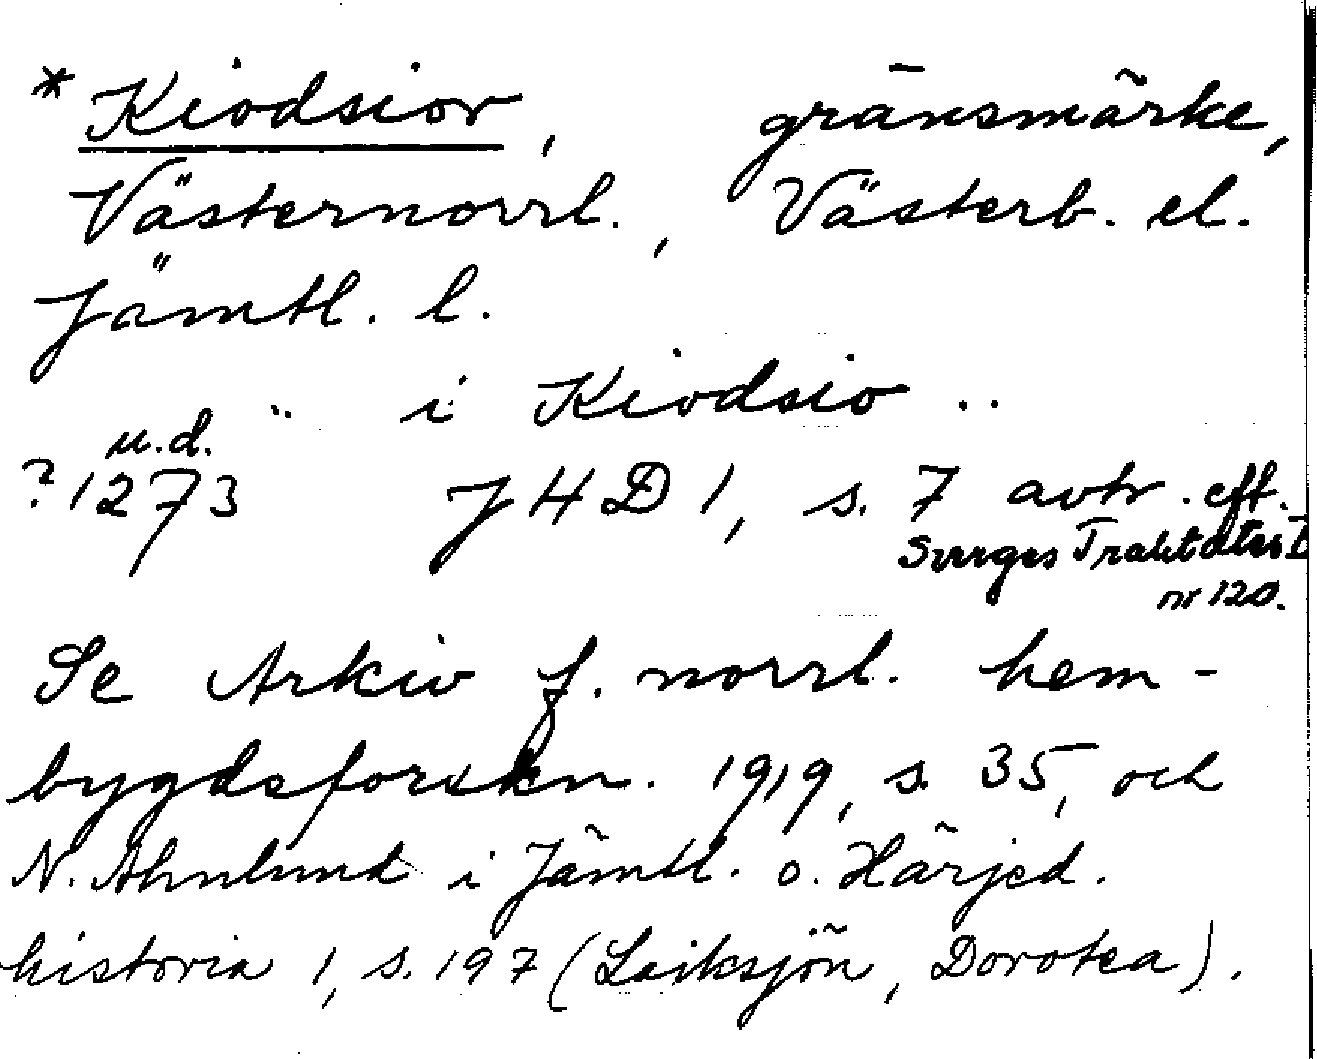 * Kiodsior, gränsmärke,
Västernorrl., Västerb. el.
Jämtl. l.
.. i Kiodsio ..
u.d.
? 1273 JHD 1, s. 7 avtr. eft.
Sverges Traktater I
nr 120.
Se Arkiv f. norrl. hem-
bygdsforskn. 1919, s. 35, och
N. Ahnlund i Jämtl. o. Härjed.
historia 1, s. 197 (Laiksjön, Dorotea).